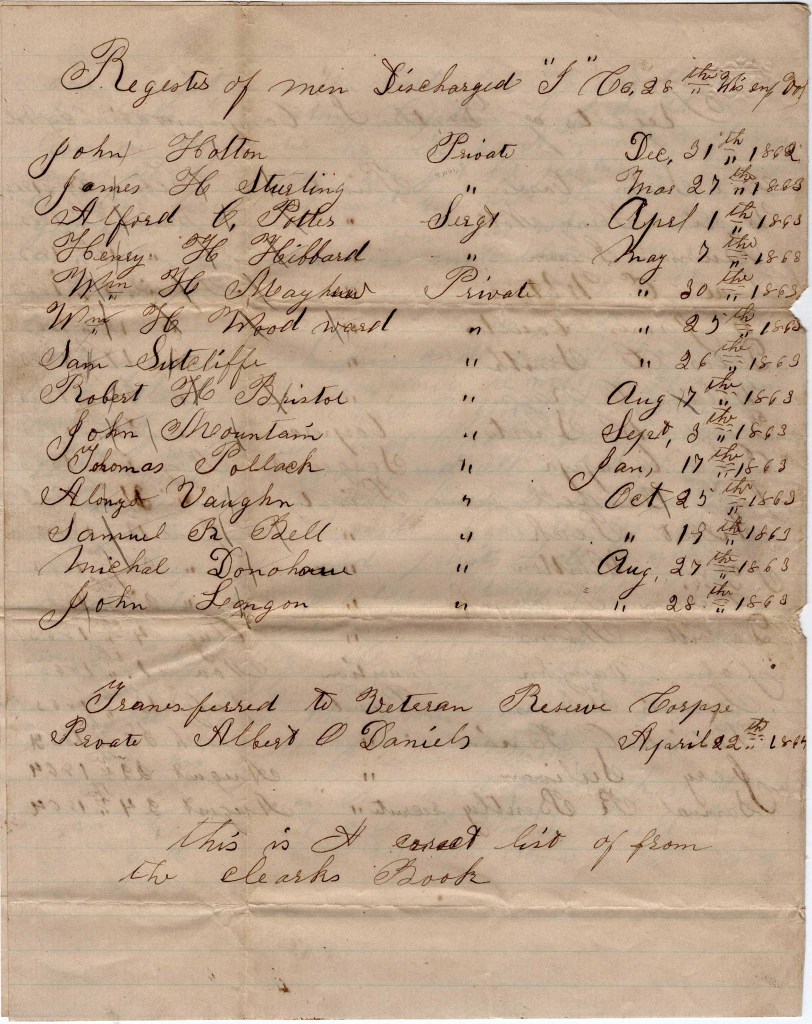 Register of men Discharged "I" Co, 28th Wis
John Hotton Private Dec, 31th 1862
James H Sturling " Mar 27th 1863
Alford C, Potter Sergt Aprel 1th 1863
Henry H Hibbard " May 7th 1863
Wm H Mayhew Private " 30th 1863
Wm H Wood ward " " 25th 1863
Sam Sutcliffe " " 26th 1863
Robert H Bristol " Aug 7th 1863
John Mountain " Sept, 3th 1863
Thomas Pollack " Jan, 17th 1863
Alonzo Vaughn " Oct 25th 1863
Samuel R Bell " " 19th 1863
Michal Donohaue " Aug, 27th 1863
John Langon " " 28th 1863
Transferred to Veteran Reserve Corpse
Private Albert O Daniels April 22th 1864
this is A corect list of from
the clearks Book